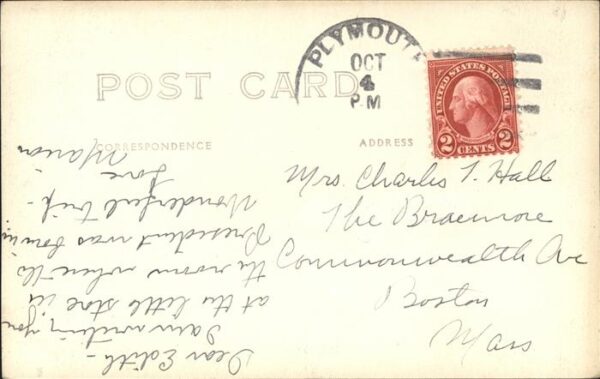 POST CARD
CORRESPONDENCE
ADDRESS
PLYMOUTH
OCT
4
PM
UNITED STATES POSTAGE
2 CENTS 2
Mrs. Charles T. Hall
The Braemore
Commonwealth Ave
Boston
Mass
Dear Edith -
I am writing you
at the little store in
the room where the
President was born in.
Wonderful trip -
Love
Marion